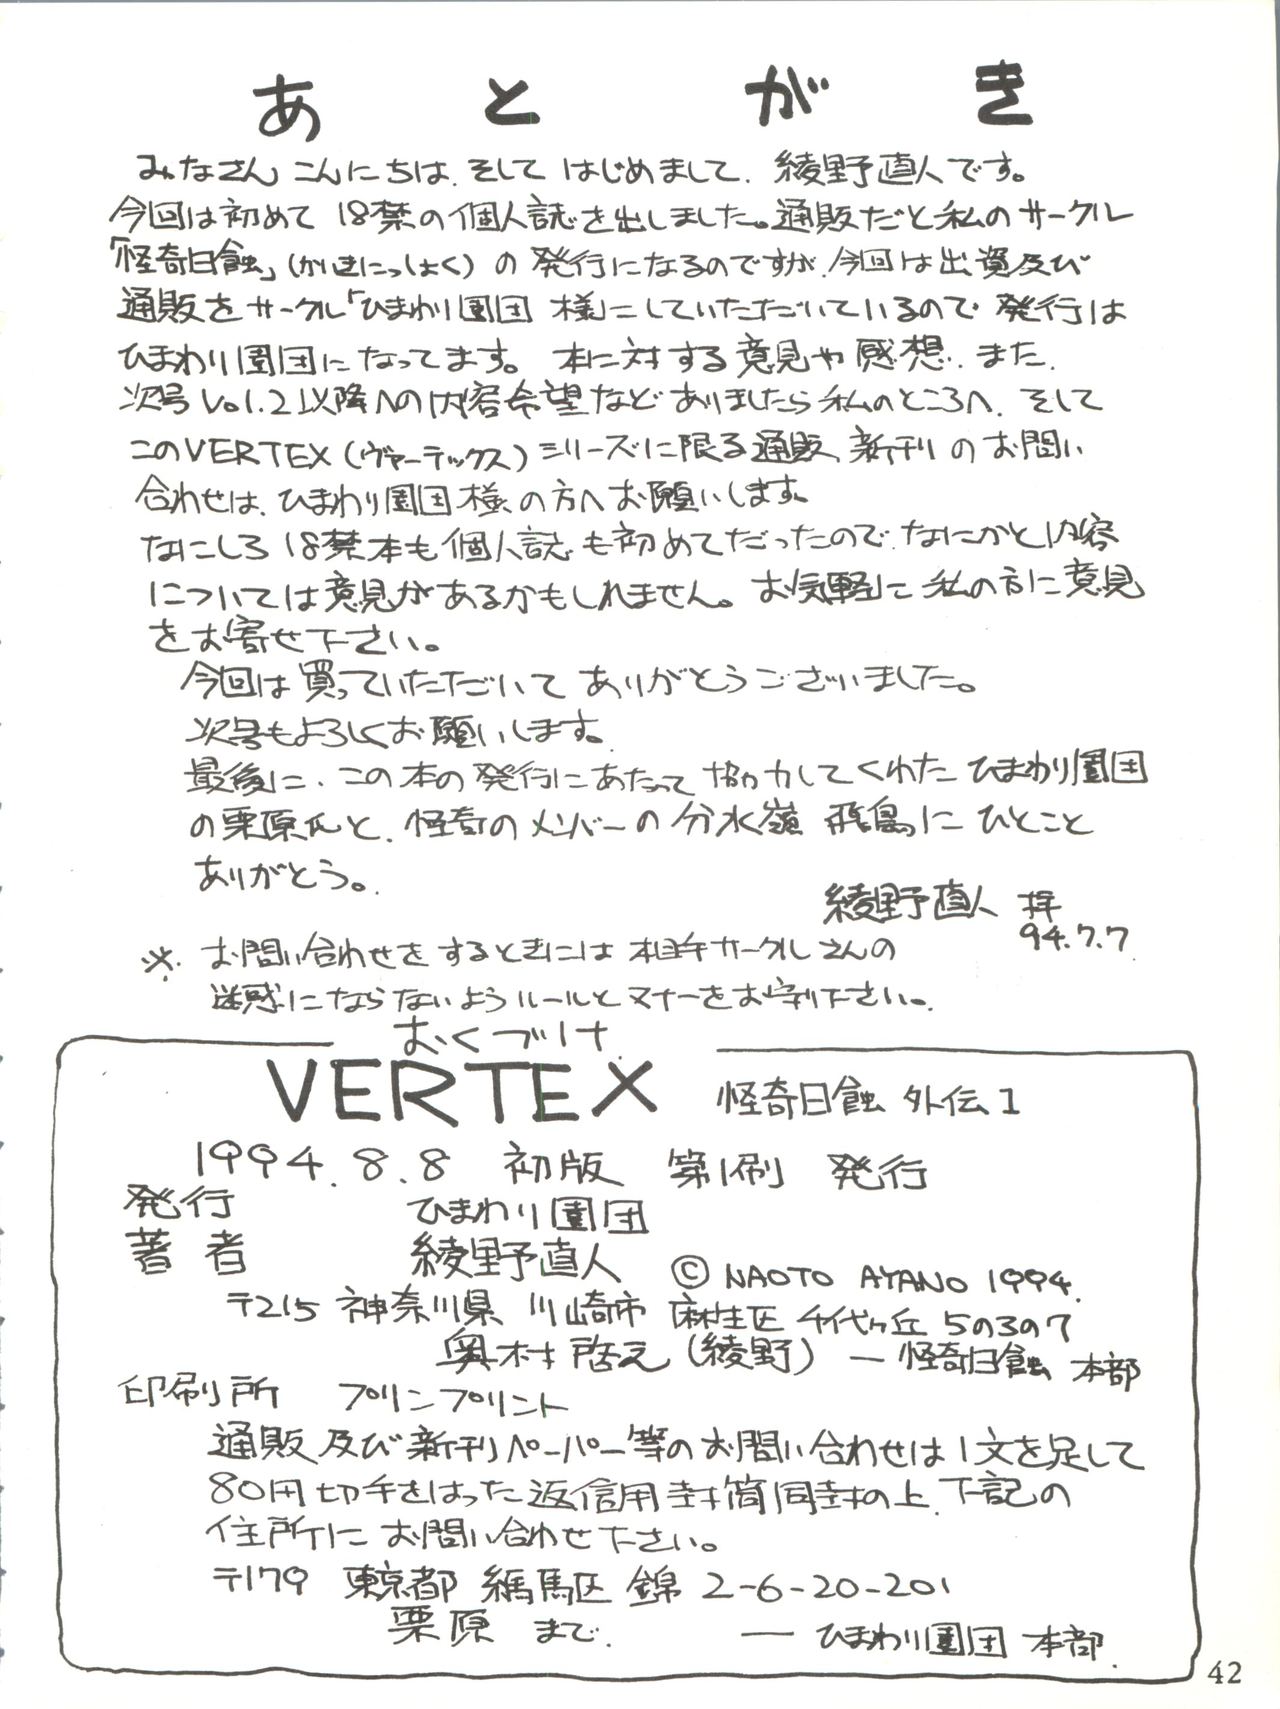 あとがき
みなさん こんにちは、そして はじめまして、綾野直人です。
今回は初めて 18禁の個人誌を出しました。通販だと私のサークル
「怪奇日蝕」(かいきにっしょく)の 発行になるのですが、今回は出資及び
通販をサークル「ひまわり園団 様」にしていただいているので 発行は
ひまわり園団になってます。 本に対する意見や感想、また、
次号Vol.2以降への内容希望などありましたら私のところへ、そして
このVERTEX(ヴァーテックス)シリーズに限る通販、新刊のお問い
合わせは、ひまわり園団様、の方へお願いします。
なにしろ18禁本も個人誌も初めてだったので、なにかと内容
については意見があるかもしれません。お気軽に私の方に意見
をお寄せ下さい。
今回は買っていただいて ありがとうございました。
次号もよろしくお願いします。
最後に、この本の発行にあたって協力してくれたひまわり園団
の栗原氏と、怪奇のメンバーの分水嶺 飛鳥に ひとこと
ありがとう。
綾野直人 拝
94.7.7
※ お問い合わせをするときには 本自体サークルさんの
迷惑にならないようルールとマナーをお守り下さい。
おくづけ
VERTEX 怪奇日蝕 外伝1
1994.8.8 初版 第1刷 発行
発行 ひまわり園団
著者 綾野直人 © NAOTO AYANO 1994.
〒215 神奈川県 川崎市 麻生区 千代ヶ丘 5の3の7
奥村啓之(綾野) ― 怪奇日蝕 本部
印刷所 プリンプリント
通販及び新刊ペーパー等のお問い合わせは1文を足して
80円切手をはった返信用封筒同封の上、下記の
住所に お問い合わせ下さい。
〒179 東京都 練馬区 錦 2-6-20-201
栗原 まで. ― ひまわり園団 本部.
42